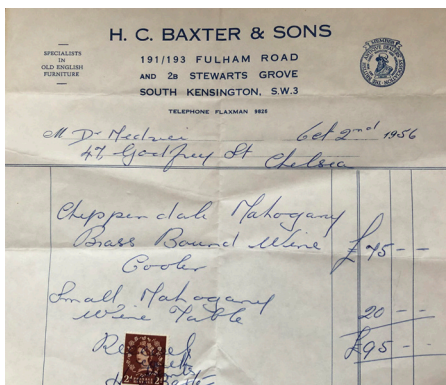 H. C. BAXTER & SONS
SPECIALISTS
IN
OLD ENGLISH
FURNITURE
191/193 FULHAM ROAD
AND 2B STEWARTS GROVE
SOUTH KENSINGTON, S.W.3
TELEPHONE FLAXMAN 9826
M Dr Oct 2nd 1956
47 Godfrey St Chelsea
Chippendale Mahogany
Brass Bound Wine £75 - -
Cooler
Small Mahogany
Wine Table 20 - -
£95 - -